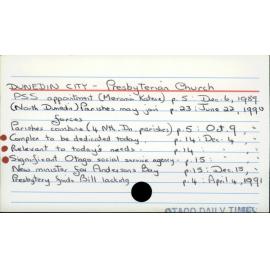 DUNEDIN CITY - Presbyterian Church
PSS appointment (Merania Kotene) p. 5 : Dec. 6, 1989
(North Dunedin) Parishes may join p. 23 : June 22, 1990
forces
Parishes combine (4 Nth. Dn. parishes) p. 5 : Oct. 9, "
Complex to be dedicated today. p. 14 : Dec. 4, "
Relevant to today's needs. p. 14 : " "
Significant Otago social service agency. p. 15 : " "
New minister for Andersons Bay p. 15 : Dec. 15, "
Presbytery finds Bill lacking p. 4 : April 4, 1991
OTAGO DAILY TIMES